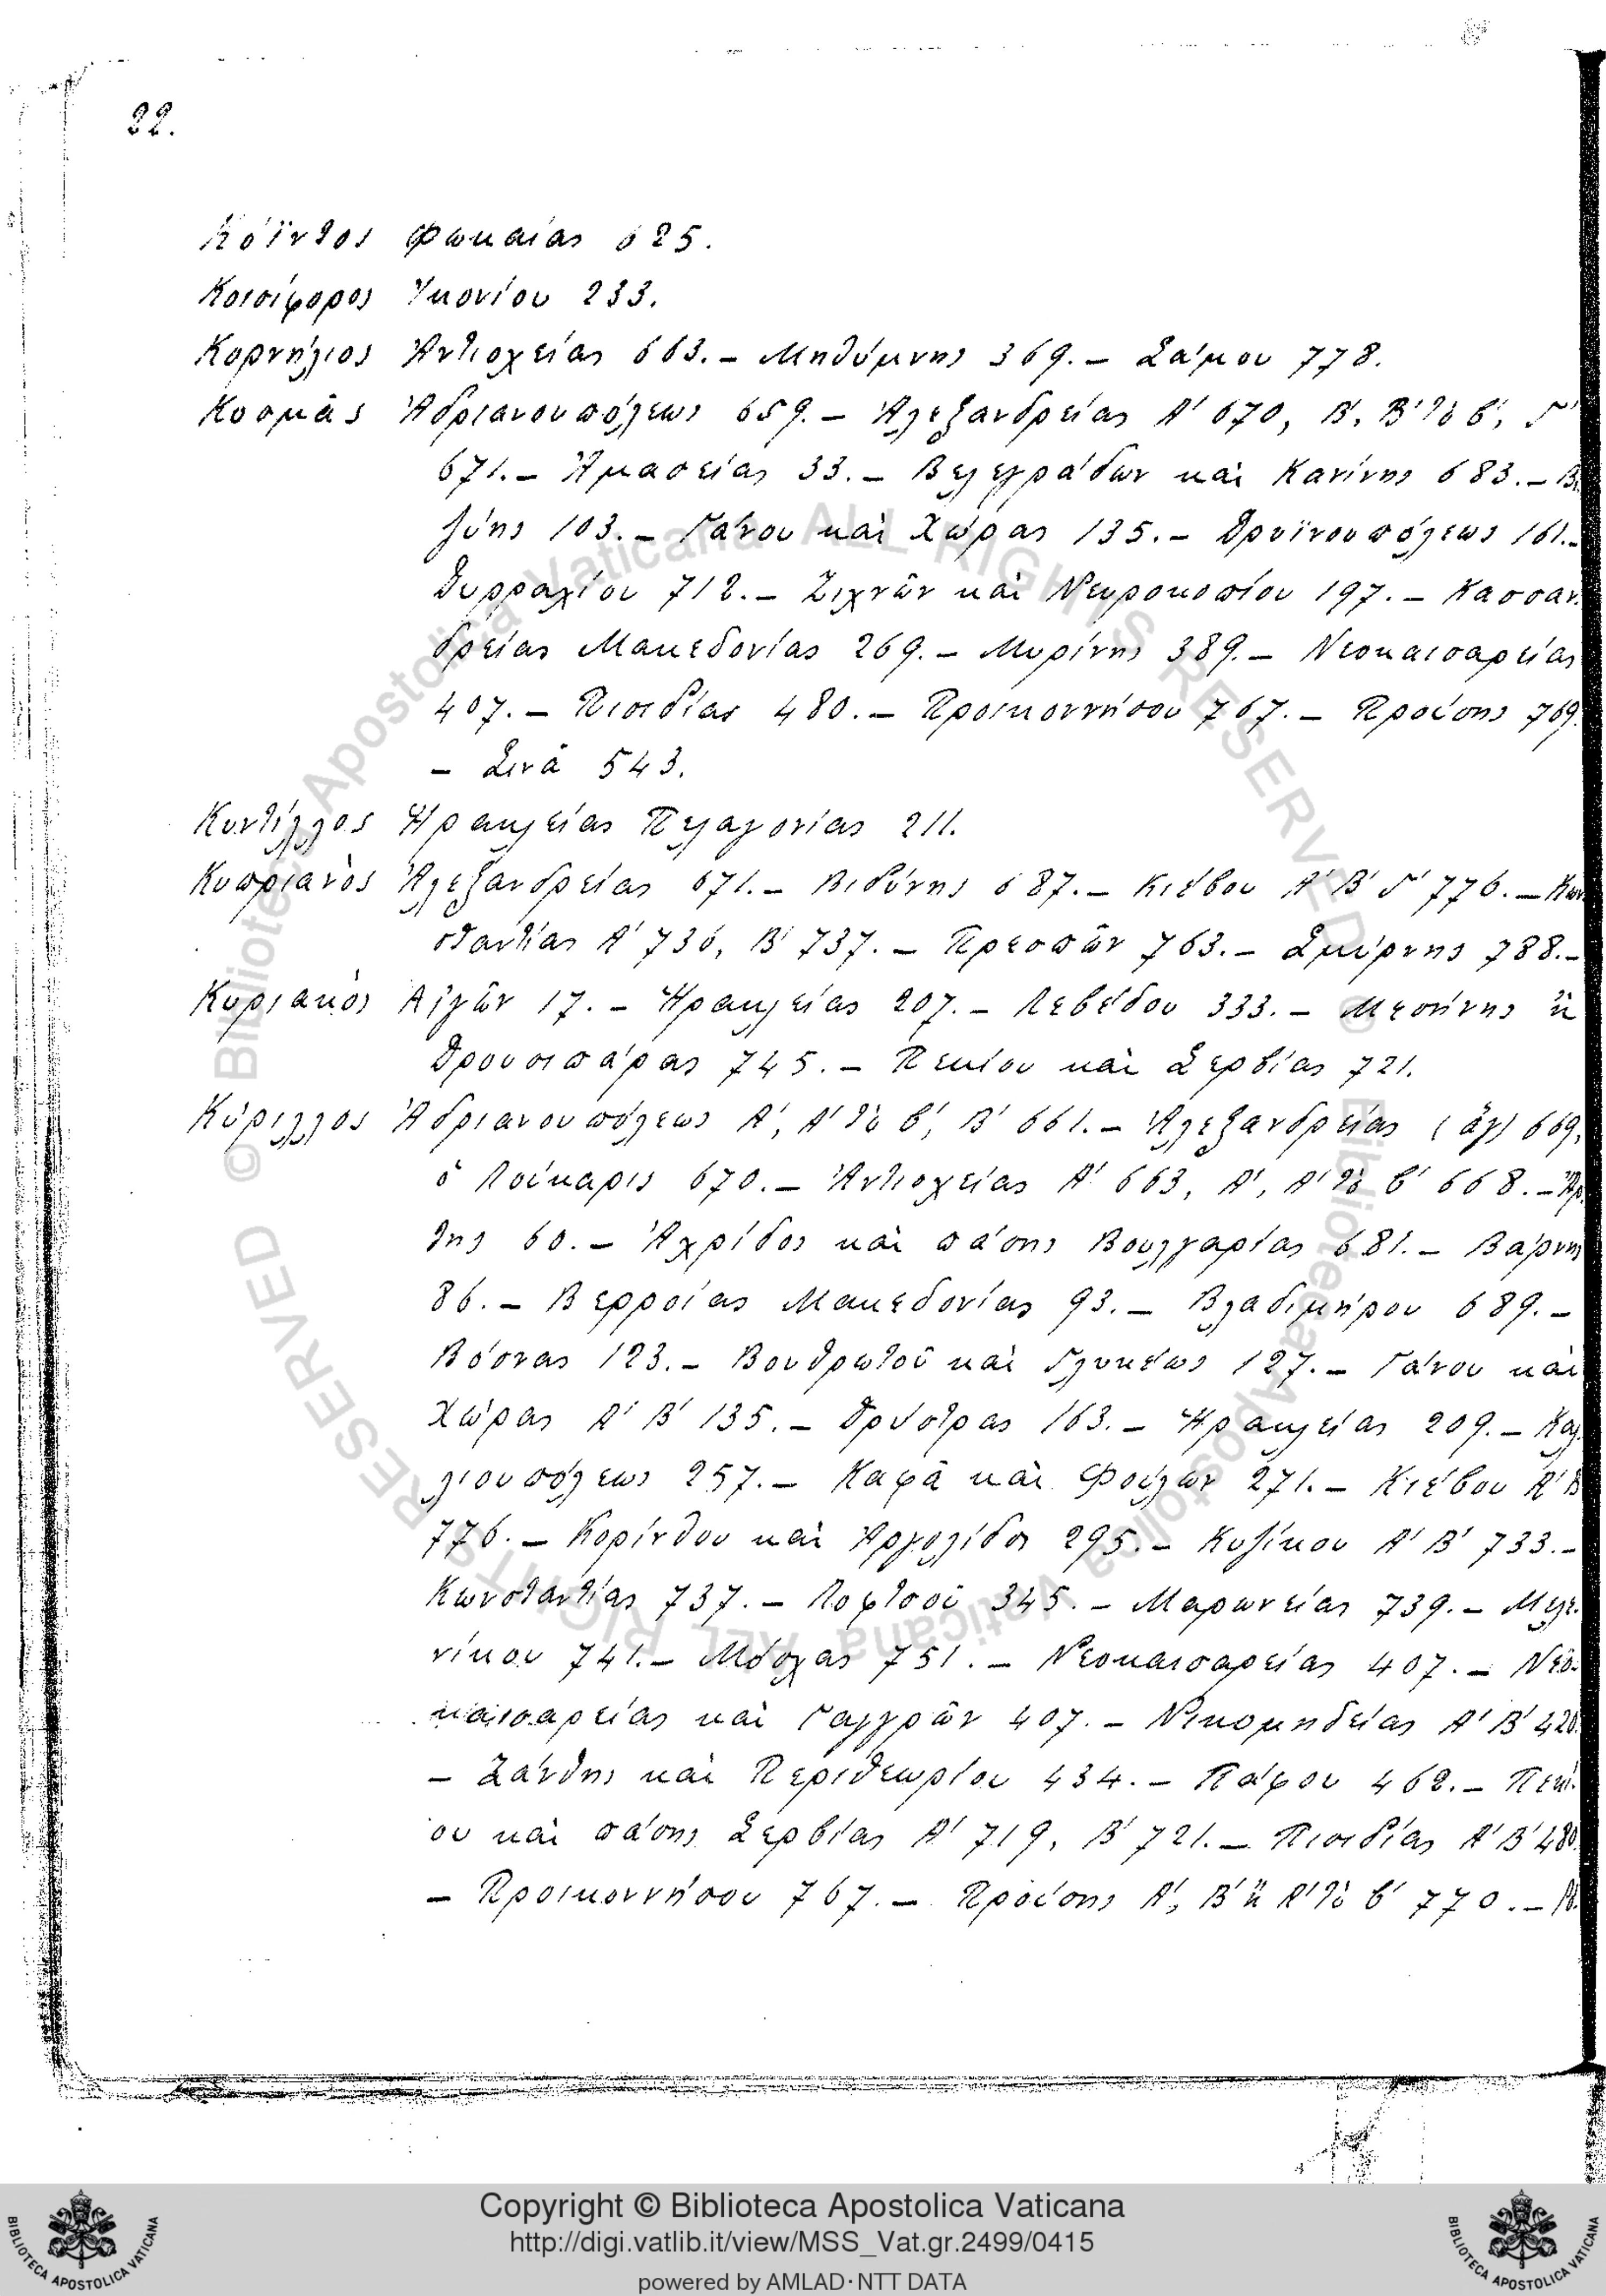 22.
Κόϊντος Φωκαίας 625.
Κοισίφορος Ἰκονίου 233.
Κορνήλιος Ἀντιοχείας 663.– Μηθύμνης 369.– Σάμου 778.
Κοσμᾶς Ἀδριανουπόλεως 659.– Ἀλεξανδρείας Α' 670, Β', Β' τὸ β', Γ'
671.– Ἀμασείας 33.– Βελεγράδων καὶ Κανίνης 683.– Βι
ζύης 103.– Γάνου καὶ Χώρας 135.– Δρυϊνουπόλεως 161.–
Δυρραχίου 712.– Ζιχνῶν καὶ Νευροκοπίου 197.– Κασσαν
δρείας Μακεδονίας 269.– Μυρίνης 389.– Νεοκαισαρείας
407.– Πισιδίας 480.– Προικοννήσου 767.– Προύσης 769.
– Σινᾶ 543.
Κυντίλλος Ἡρακλείας Πελαγονίας 211.
Κυπριανὸς Ἀλεξανδρείας 671.– Βιδύνης 687.– Κιέβου Α' Β' Γ' 776.– Κων
σταντίας Α' 736, Β' 737.– Πρεσπῶν 763.– Σμύρνης 788.–
Κυριακὸς Αἰγῶν 17.– Ἡρακλείας 207.– Λεβέδου 333.– Μεσήνης κ̀
Δρουσιπάρας 745.– Πεκίου καὶ Σερβίας 721.
Κύριλλος Ἀδριανουπόλεως Α', Α' τὸ β', Β' 661.– Ἀλεξανδρείας (ἅγ) 669,
ὁ Λούκαρις 670.– Ἀντιοχείας Α' 663, Α', Α' τὸ β' 668.– Ἄρ
της 60.– Ἀχρίδος καὶ πάσης Βουλγαρίας 681.– Βάρνης
86.– Βερροίας Μακεδονίας 93.– Βλαδιμήρου 689.–
Βόσνας 123.– Βουθρωτοῦ καὶ Γλυκέως 127.– Γάνου καὶ
Χώρας Α' Β' 135.– Δρύστρας 163.– Ἡρακλείας 209.– Καλ
λιουπόλεως 257.– Καφᾶ καὶ Φούλων 271.– Κιέβου Α' Β'
776.– Κορίνθου καὶ Ἀργολίδος 295.– Κυζίκου Α' Β' 733.–
Κωνσταντίας 737.– Λοφτσοῦ 345.– Μαρωνείας 739.– Μελε
νίκου 741.– Μόσχας 751.– Νεοκαισαρείας 407.– Νεο
καισαρείας καὶ Γαγγρῶν 407.– Νικομηδείας Α' Β' 420.
– Ξάνθης καὶ Περιθεωρίου 434.– Πάφου 462.– Πεκί
ου καὶ πάσης Σερβίας Α' 719, Β' 721.– Πισιδίας Α' Β' 480.
– Προικοννήσου 767.– Προύσης Α', Β' κ̀ Α' τὸ β' 770.–
© Biblioteca Apostolica Vaticana ALL RIGHTS RESERVED
Copyright © Biblioteca Apostolica Vaticana
http://digi.vatlib.it/view/MSS_Vat.gr.2499/0415
powered by AMLAD·NTT DATA
BIBLIOTECA APOSTOLICA VATICANA
BIBLIOTECA APOSTOLICA VATICANA